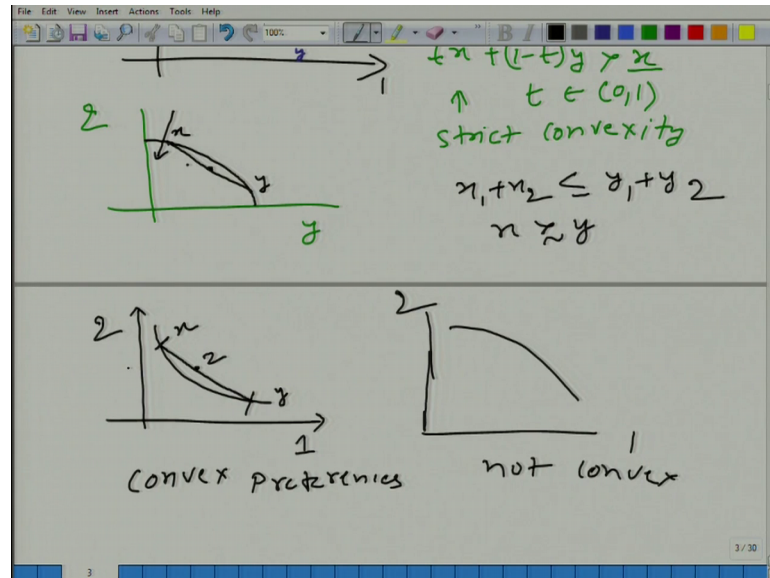 File Edit View Insert Actions Tools Help
100%
B I
y
1
tx + (1-t)y > x
↑ t ∈ (0,1)
strict convexity
2
x
y
y
x₁+x₂ ≤ y₁+y₂
x ≿ y
2
x
z
y
1
convex preferenies
2
1
not convex
3 / 30
3